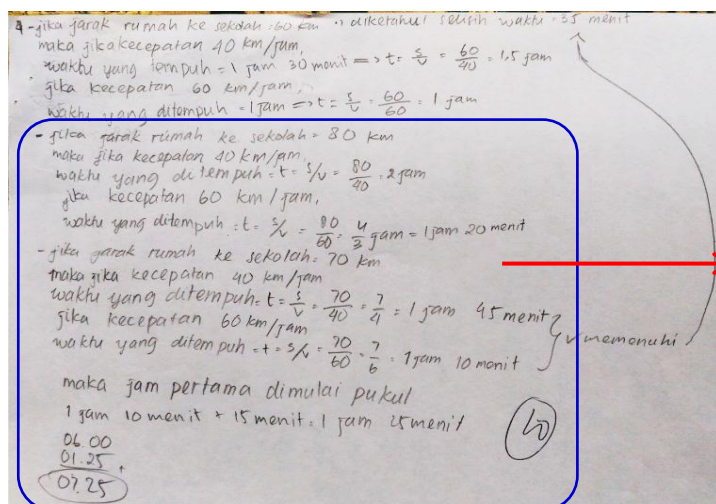 4 - jika jarak rumah ke sekolah = 60 km ∴ diketahui selisih waktu = 35 menit
maka jika kecepatan 40 km/jam,
waktu yang tempuh = 1 jam 30 menit => t = s/v = 60/40 = 1,5 jam
jika kecepatan 60 km/jam,
waktu yang ditempuh = 1 jam => t = s/v = 60/60 = 1 jam
- jika jarak rumah ke sekolah = 80 km
maka jika kecepatan 40 km/jam,
waktu yang di tempuh = t = s/v = 80/40 = 2 jam
jika kecepatan 60 km/jam,
waktu yang ditempuh = t = s/v = 80/60 = 4/3 jam = 1 jam 20 menit
- jika jarak rumah ke sekolah = 70 km
maka jika kecepatan 40 km/jam
waktu yang ditempuh = t = s/v = 70/40 = 7/4 = 1 jam 45 menit
jika kecepatan 60 km/jam
waktu yang ditempuh = t = s/v = 70/60 = 7/6 = 1 jam 10 menit
} v memenuhi
maka jam pertama dimulai pukul
1 jam 10 menit + 15 menit = 1 jam 25 menit
06.00
01.25 +
07.25